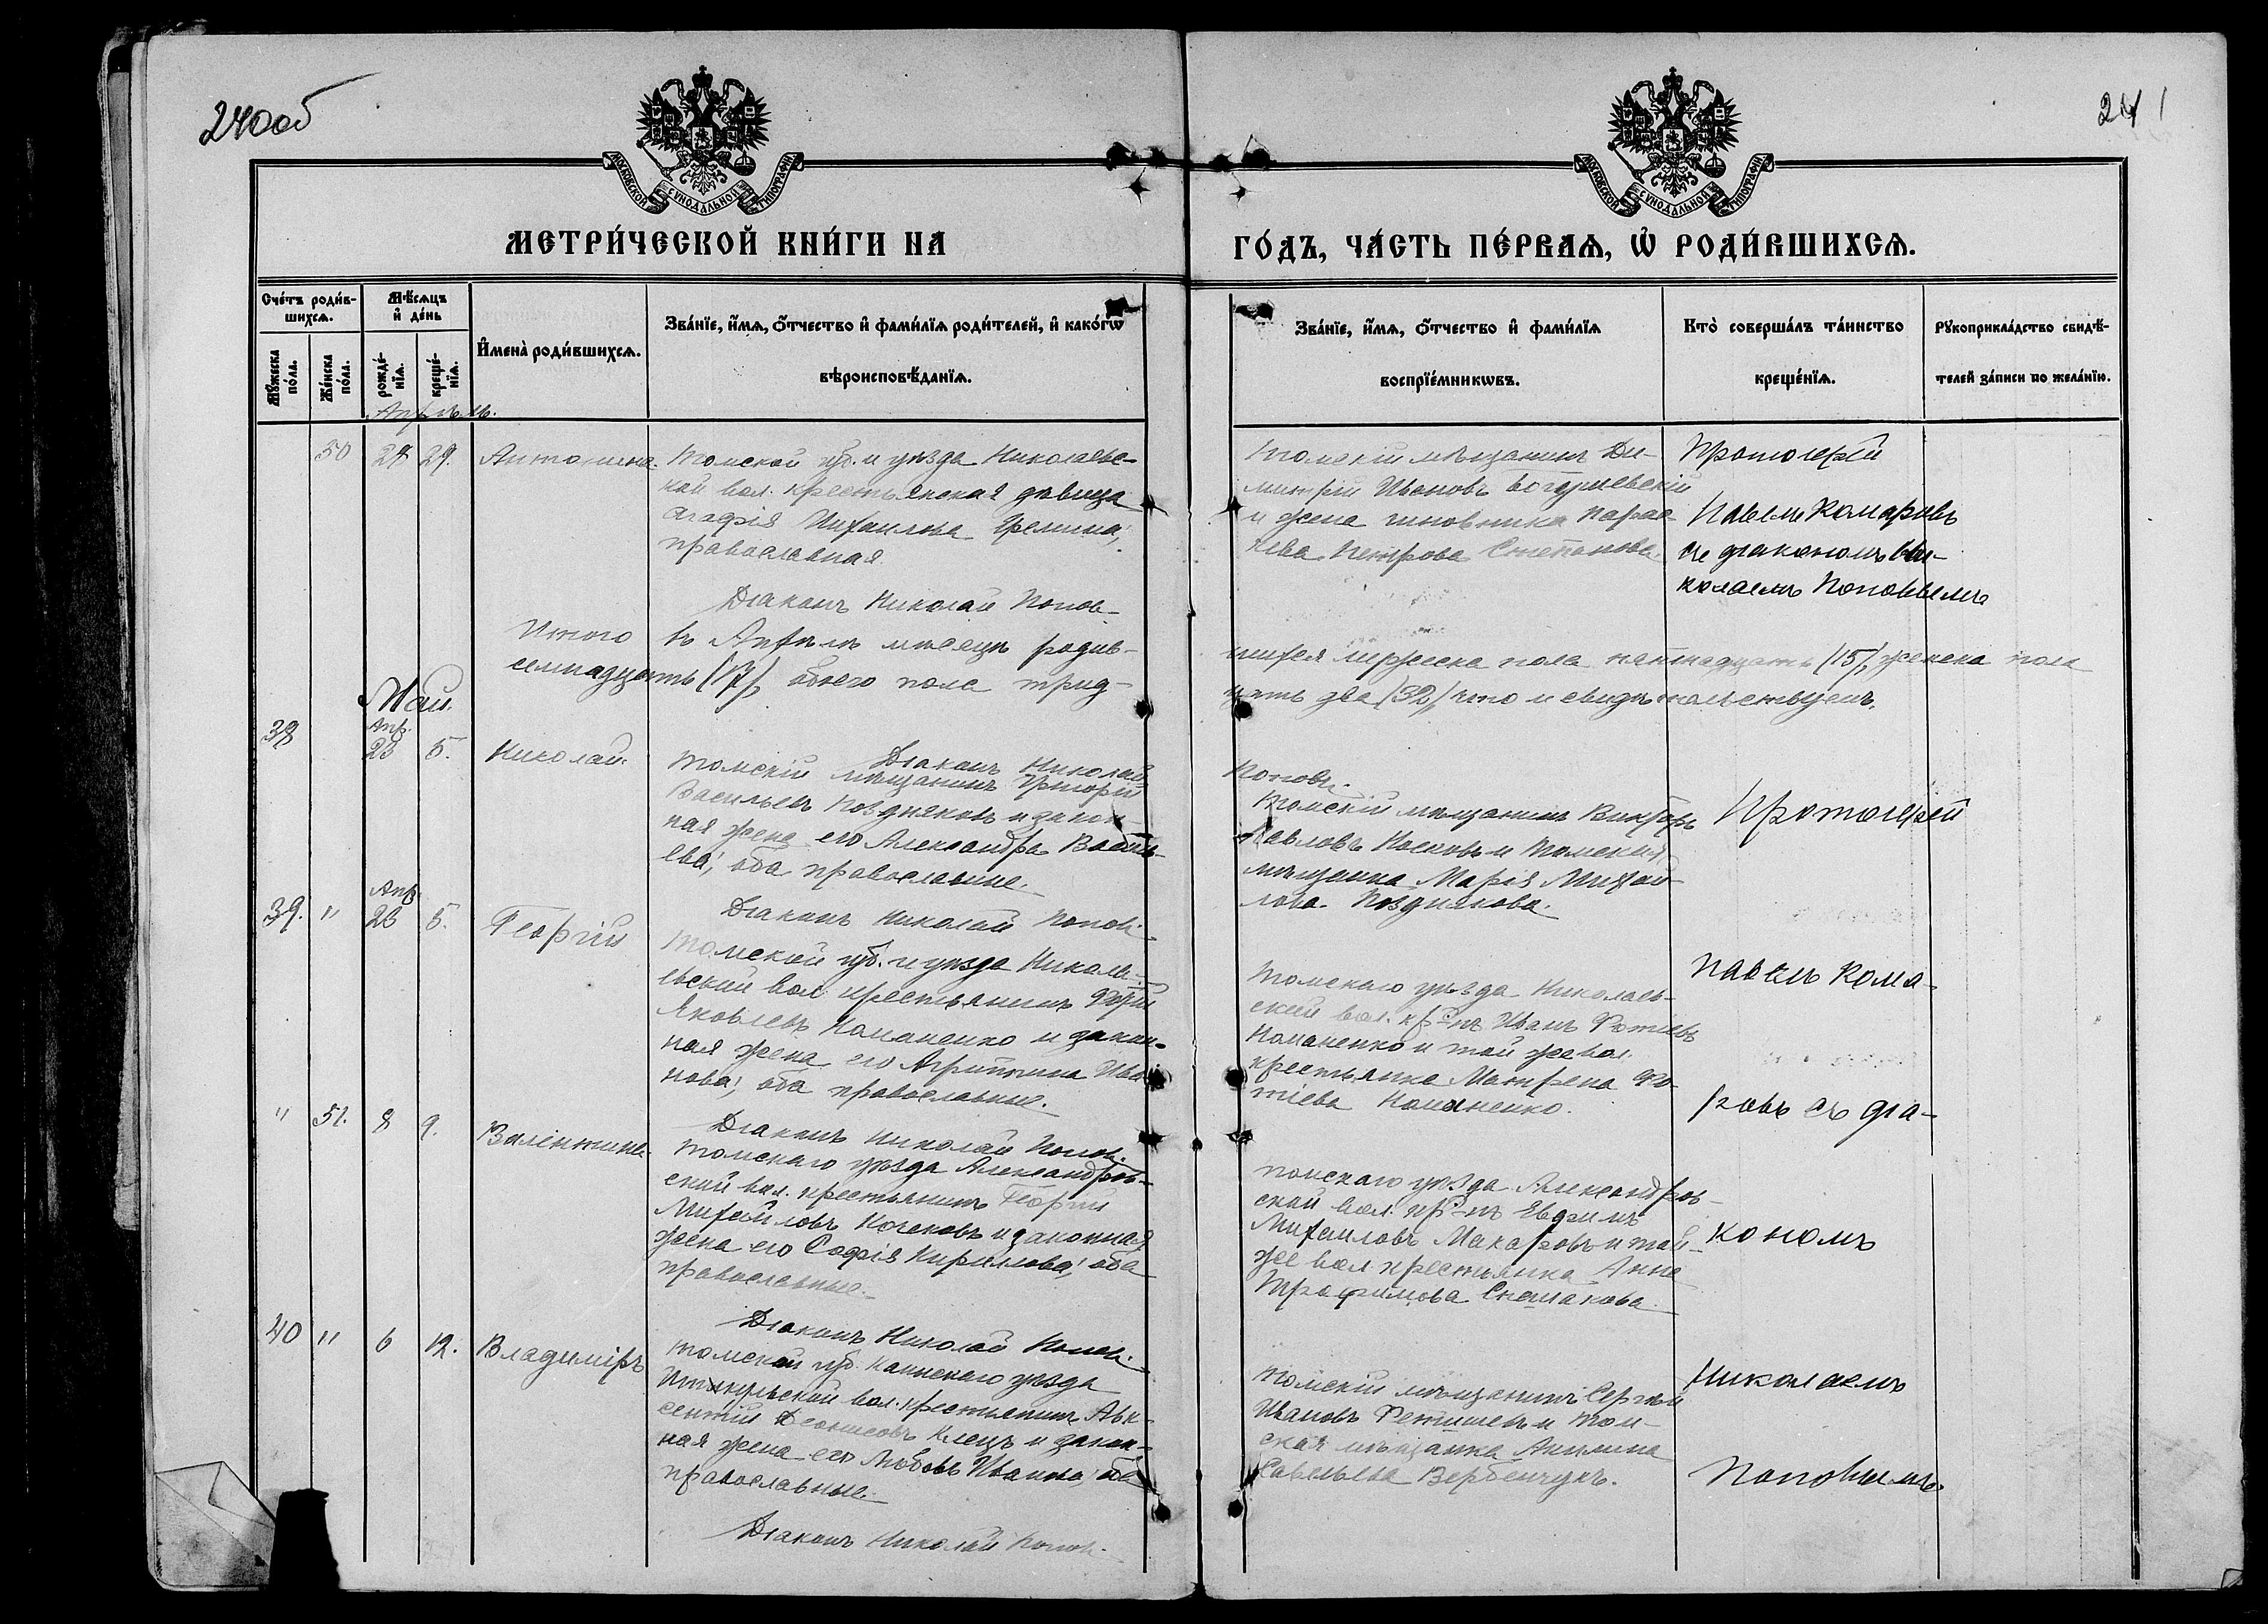 240об
241
МОСКОВСКОЙ СѴНОДАЛЬНОЙ ТИПОГРАФІИ
МОСКОВСКОЙ СѴНОДАЛЬНОЙ ТИПОГРАФІИ
МЕТРИ́ЧЕСКОЙ КНИ́ГИ НА
ГО́ДЪ, ЧА́СТЬ ПЕ́РВАѦ, Ѿ РОДИ́ВШИХСѦ.
Сче́тъ роди́в-
шихсѧ.
Мѣ́сѧцъ
и҆ де́нь
Мꙋ́жеска
по́ла.
Же́нска
по́ла.
рожде́-
нїѧ.
креще́-
нїѧ.
И҆мена̀ роди́вшихсѧ.
Зва́нїе, и҆́мѧ, ѻ҆́тчество и҆ фами́лїѧ роди́телей, и҆ како́гѡ
вѣроисповѣ́данїѧ.
Зва́нїе, и҆́мѧ, ѻ҆́тчество и҆ фами́лїѧ
воспрїе́мникѡвъ.
Кто̀ соверша́лъ та́инство
креще́нїѧ.
Рꙋкоприкла́дство свидѣ́-
телей за́писи по жела́нїю.
Апрѣль.
50 28 29. Антонина.
Томской губ. и уѣзда Николаевс-
кой вол. крестьянская дѣвица
Агафія Михаилова
православная
Діаконъ Николай Попов
Томскій мѣщанинъ Ди-
митрій Ивановъ
и жена чиновника Парас
кева Петрова Степанова.
Протоіерей
Павелъ Комаровъ
съ діакономъ Ни-
колаемъ Поповымъ
Итого въ Апрѣлѣ мѣсяцѣ родив-
шихся мужеска пола пятнадцать (15), женска пола
семнадцать (17), обоего пола трид-
цать два (32), что и свидѣтельствуемъ.
Діаконъ Николай
Поповъ.
Май.
38 Апр. 23 5. Николай.
Томскій мѣщанинъ Григорій
Васильевъ Поздняковъ и закон-
ная жена его Александра Василь-
ева; оба православные.
Діаконъ Николай Поповъ
Томскій мѣщанинъ Викторъ
Павловъ Носковъ и томская
мѣщанка Марія Михай-
лова Позднякова.
Протоіерей
39. " Апр. 23 5. Георгій
Томской губ. и уѣзда Никола-
евской вол. крестьянинъ Фотій
Яковлевъ Номаненко и закон-
ная жена его Агриппина Ива-
нова; оба православные.
Діаконъ Николай Попов.
Томскаго уѣзда Николаев-
ской вол. кр-нъ Иванъ Фотіевъ
Номаненко и той же вол.
крестьянка Матрена Фо-
тіева Номаненко.
Павелъ Кома-
ровъ съ діа-
" 51. 8 9. Валентина.
Томскаго уѣзда Александров-
ской вол. крестьянинъ Георгій
Михайловъ Коченовъ и законная
жена его Софія Кириллова; оба
православные.
Діаконъ Николай Попов.
Томскаго уѣзда Александров-
ской вол. кр-нъ Евфимъ
Михаиловъ Макаровъ и той
же вол. крестьянка Анна
Трофимова
кономъ
40 " 6 12. Владиміръ
Томской губ. Каинскаго уѣзда
Иткульской вол. крестьянинъ Авк-
сентій Деонисовъ Клецъ и закон-
ная жена его Любовь Иванова; оба
православные.
Діаконъ Николай Попов.
Томскій мѣщанинъ Сергѣй
Ивановъ и том-
ская мѣщанка Акилина
Савельева Вербенчукъ.
Николаемъ
Поповымъ.